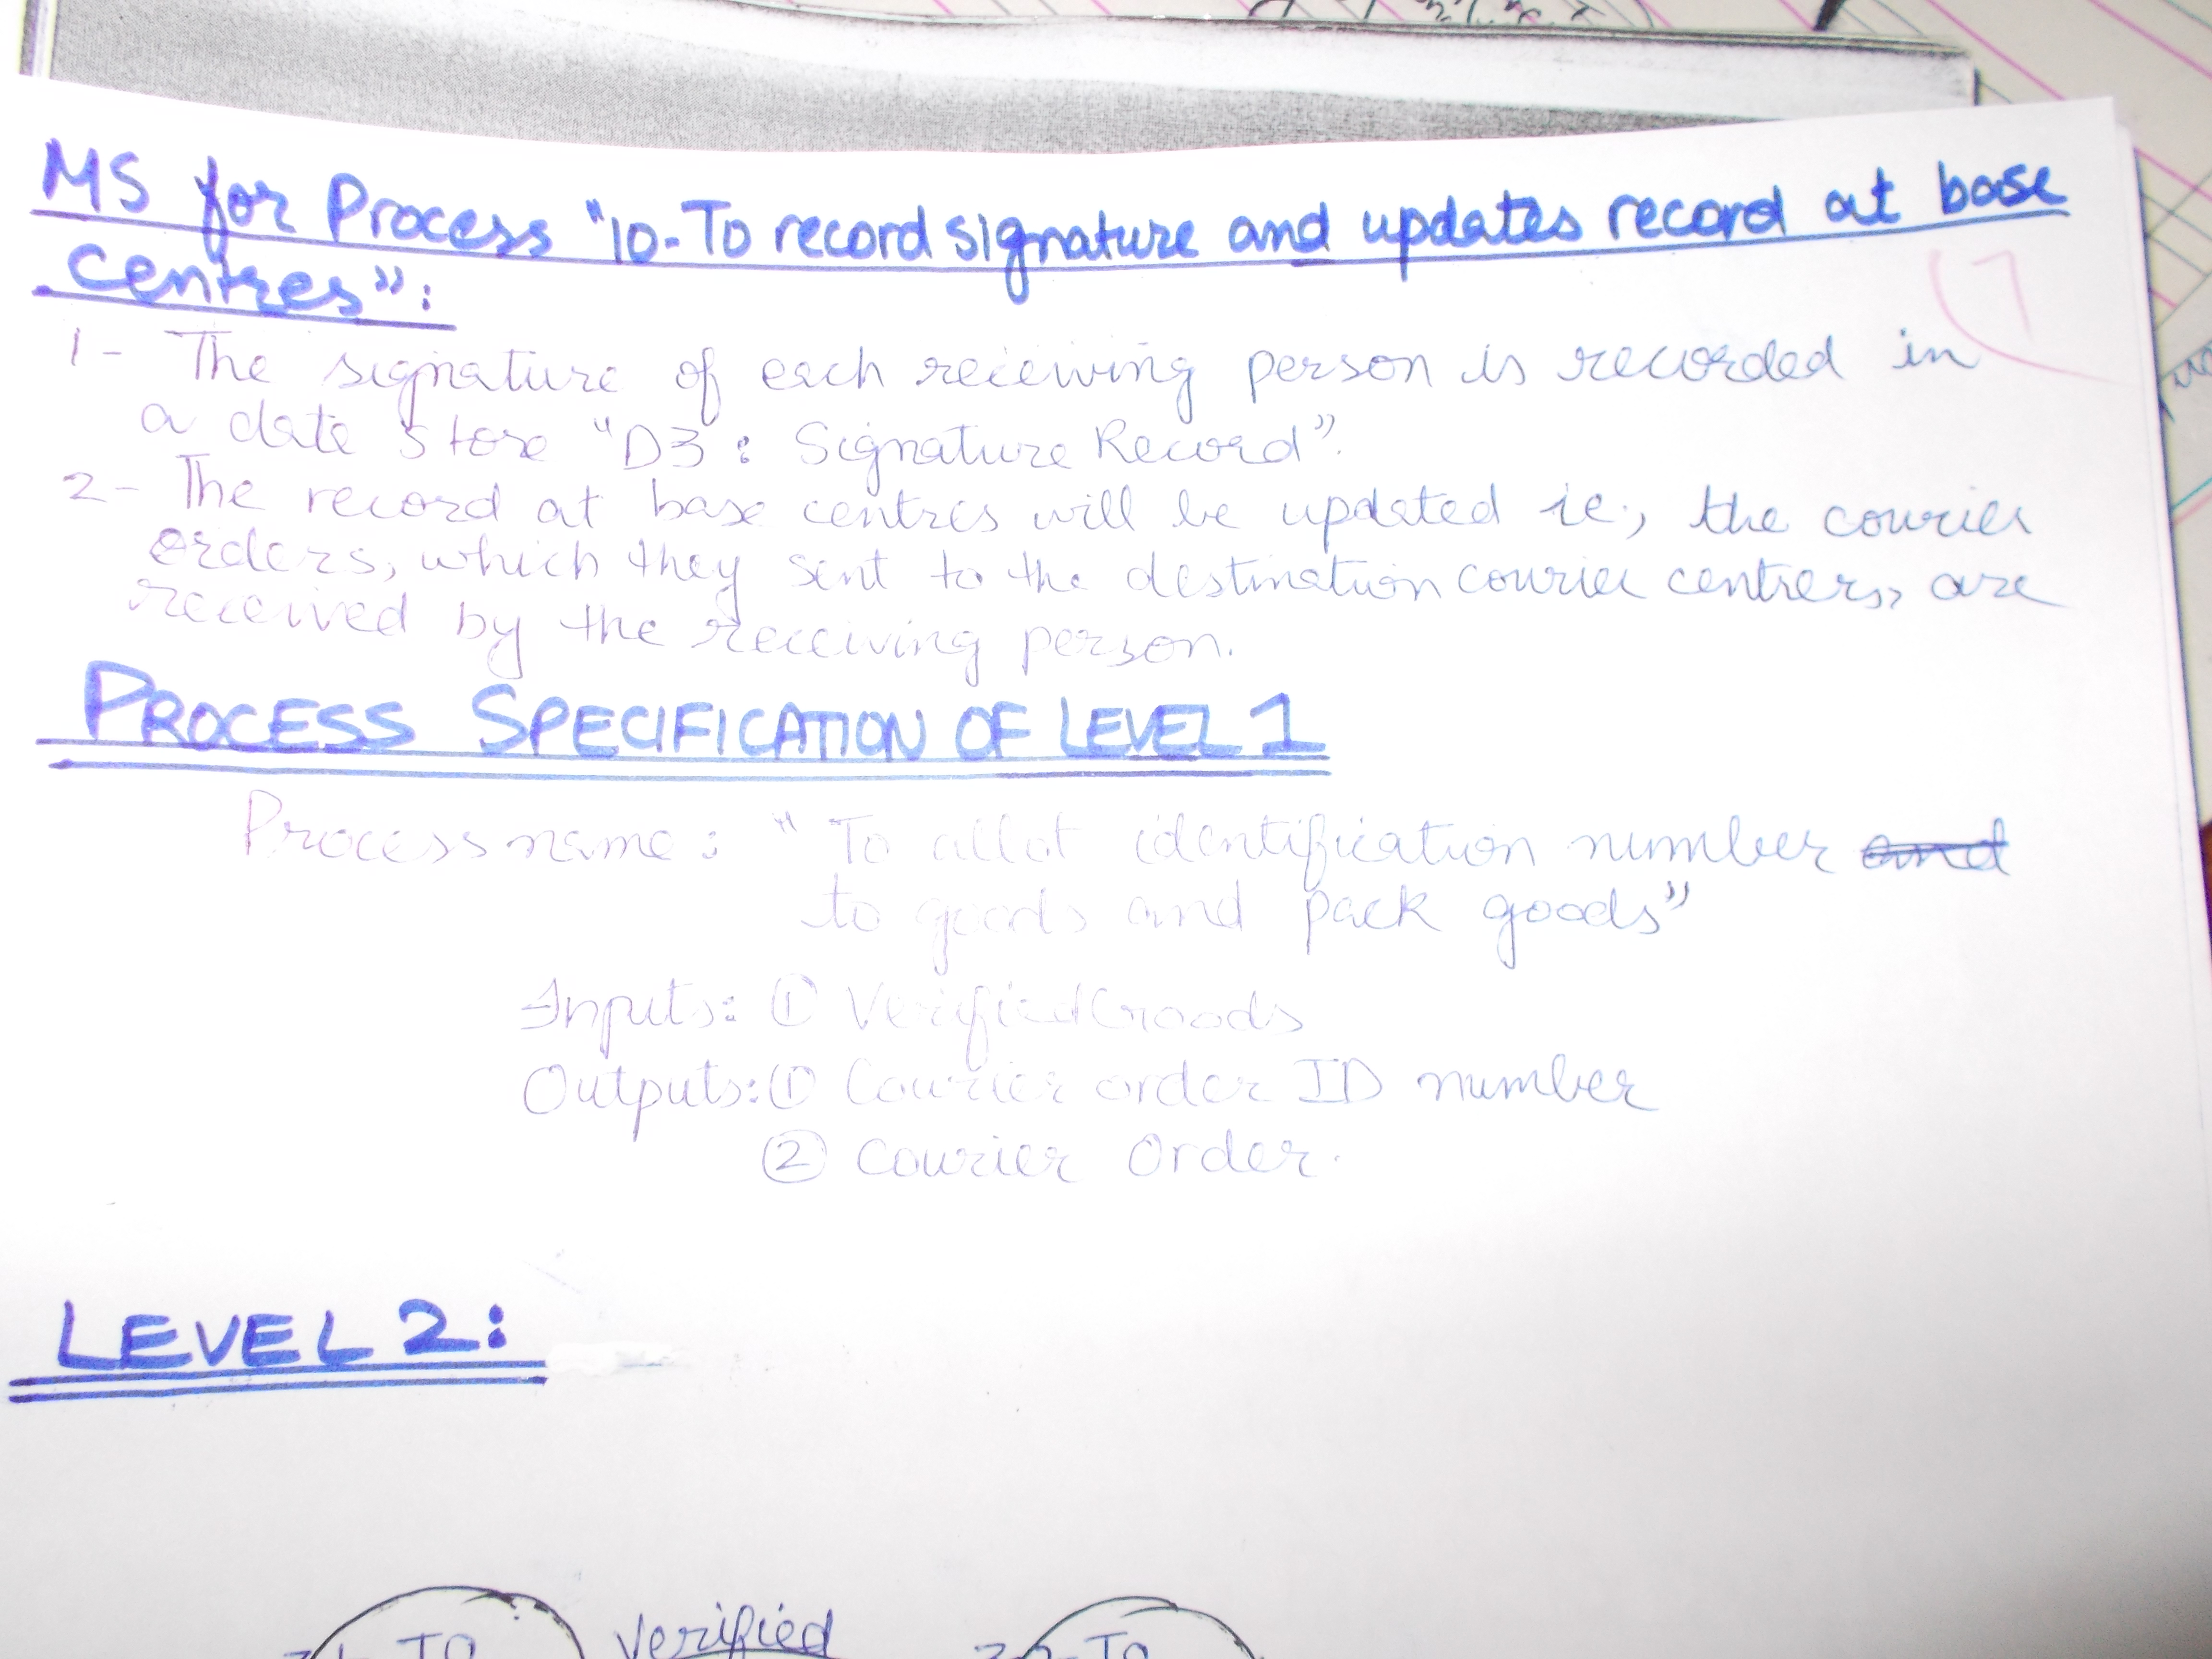 MS for Process "10-To record signature and updates record at base
centres":
1- The signature of each receiving person is recorded in
a date store "D3: Signature Record".
2- The record at base centres will be updated ie., the courier
orders, which they sent to the destination courier centrers, are
received by the receiving person.
PROCESS SPECIFICATION OF LEVEL 1
Process name: "To allot identification number and
to goods and pack goods"
Inputs: ① Verified Goods
Outputs: ① Courier order ID number
② Courier Order.
LEVEL 2:
To Verified To